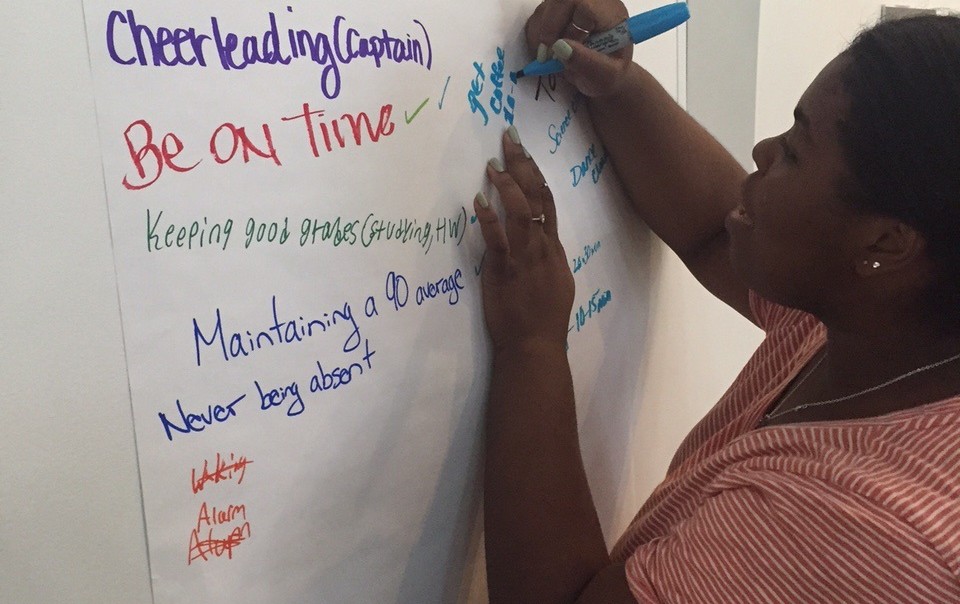 Cheerleading (Captain)
Be ON Time
Keeping good grades (studying, HW)
Maintaining a 90 average
Never being absent
Waking
Alarm
get
Coffee
Dance
20-30min
10-15min